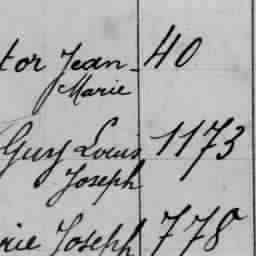 tor Jean- 40
Marie
Guy Louis 1173
Joseph
rie Joseph 778